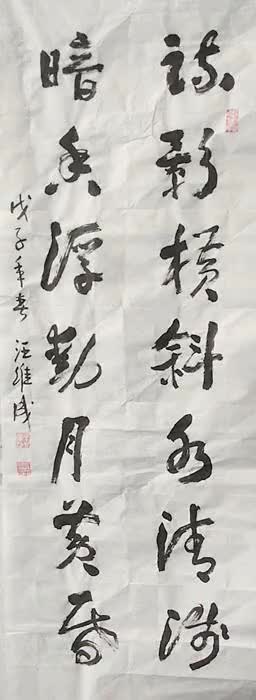 疏影横斜水清浅
暗香浮動月黄昏
戊子年春 汪維成